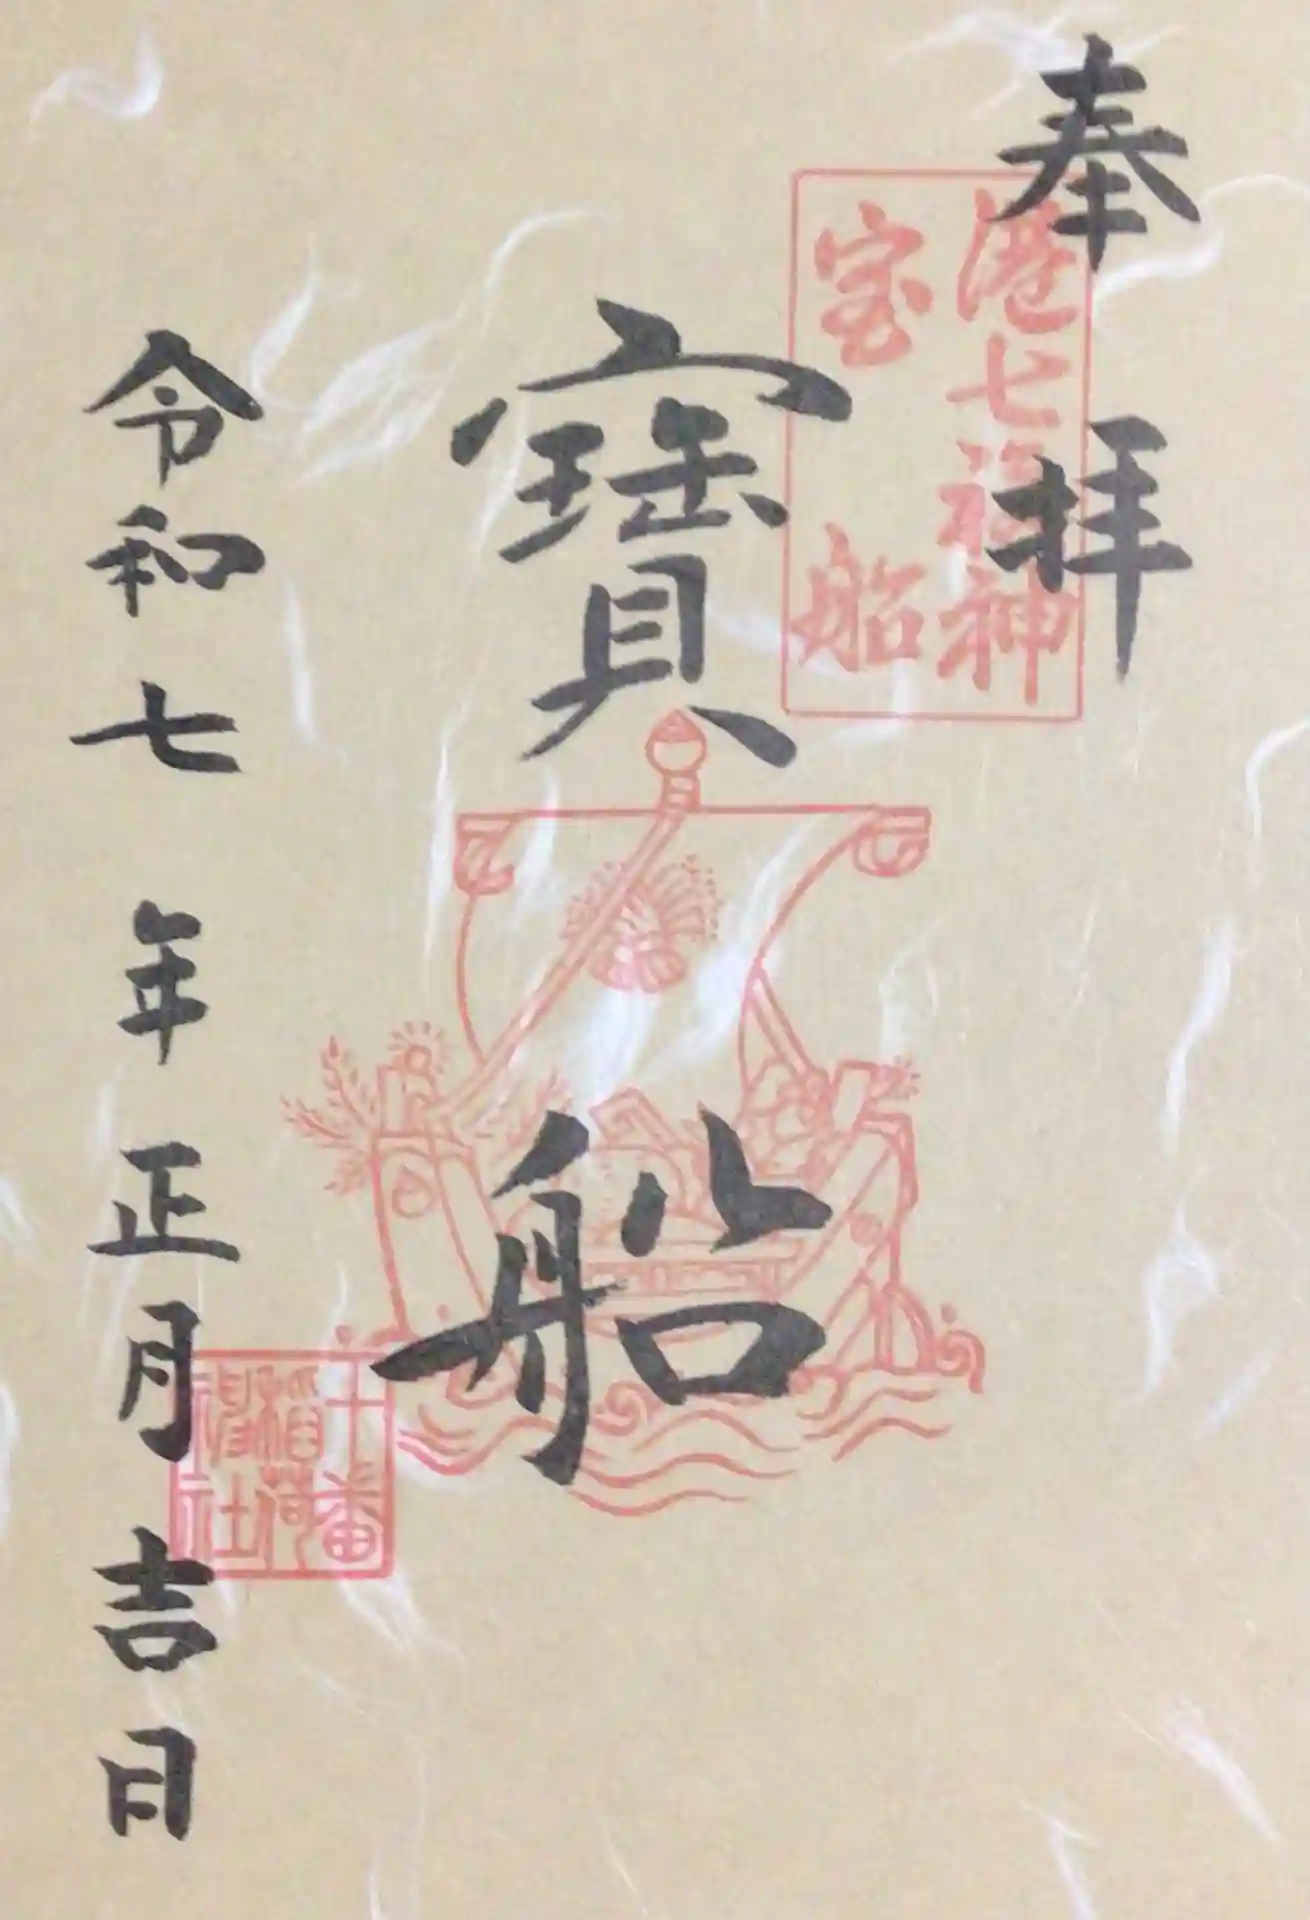 奉拝
港七福神
宝船
寶船
十番
稲荷
神社
令和七年正月吉日